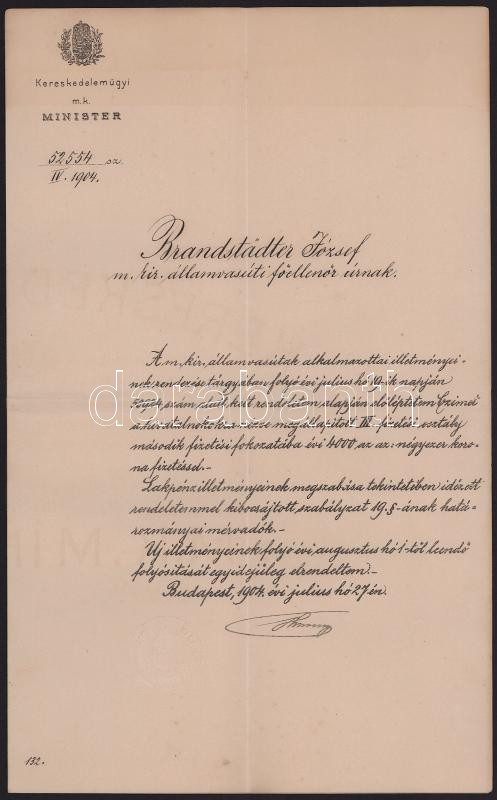 Kereskedelemügyi
m.k.
MINISTER
52554 sz.
IV. 1904.
Brandstädter József
m. kir. államvasúti főellenőr úrnak.
A m. kir. államvasútak alkalmazottai illetményei-
nek rendezése tárgyában folyó évi julius hó napján
szám alatt kelt rendeletem alapján előléptetem Czimed
a hivatalnokokra nézve megállapított fizetési osztály
második fizetési fokozatába évi 4000, az az: négyezer koro-
na fizetéssel.-
Lakpénzilletményeinek megszabása tekintetében idézett
rendeletemmel kibocsájtott szabályzat 19.§-ának hatá-
rozmányai mérvadók.-
Új illetményeinek folyó évi augusztus hó 1-től leendő
folyósítását egyidejüleg elrendeltem.-
Budapest, 1904. évi julius hó 27-én.
132.
darabanth